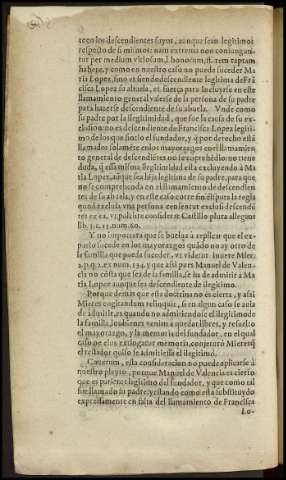 reen los descendientes suyos, aunque sean legitimos
respecto de si mismos: nam extrema non coniungun
tur per medium vitiosum, l. bonorum, ff. rem ratam
habere, y como en nuestro caso no pueda suceder Ma
ria Lopez, sino es siendo descendiente legitima de Frã
cisca Lopez su abuela, et fuerça para incluyrse en este
llamamiento general valerse de la persona de su padre
para hazerse descendiente de su abuela. Vnde como
su padre por la ilegitimidad, que fue la causa de su ex
clusion no es descendiente de Francisca Lopez legiti
mo de los que hizo el fundador, y q̃ por derecho està
llamados solamẽte en los mayorazgos con llamamien
to general de descendiẽtes no se cõprehẽdio no tiene
duda, q̃ essa misma ilegitimidad esta excluyendo à Ma
ria Lopez, aũq̃ sea hija legitima de su padre, para que
no se comprehenda en el llamamiento de descendien
tes de su abuela, y en este caso corre sin disputa la regla
quod exclusa vna persona censentur exclusi descendẽ
tes ex ea, vt pulchre considerat Castillo plura allegans
lib. 5. c. 93. num. 60.
Y no importara que se buelua à replicar que el ex
pureo sucede en los mayorazgos quãdo no ay otro de
la familia que pueda suceder, vt videtur inuere Mier.
2. p. q. 2. ex num. 194. y que assi pues Manuel de Valen
cia no cõsta que sea de la familia, se ha de admitir à Ma
ria Lopez aunque sea descendiente de ilegitimo.
Porque demas que esta doctrina no es cierta, y assi
Mieres cogitandum relinquit, si en algun caso se auia
de admitir, es quando no admitiendose el ilegitimo de
la familia, los bienes venian à quedar libres, y resuelto
el mayorazgo, y la memoria del fundador, en el qual
caso ne eius extinguatur memoria, conjeturò Mieres q̃
el testador quiso se admitiesse el ilegitimo.
Cæterum, esta consideracion no puede aplicarse à
nuestro pleyto, porque Manuel de Valencia es cierto
que es pariente legitimo del fundador, y que como tal
fue llamado su padre; y estando como esta substituydo
expressamente en falta del llamamiento de Francisca
Lo-